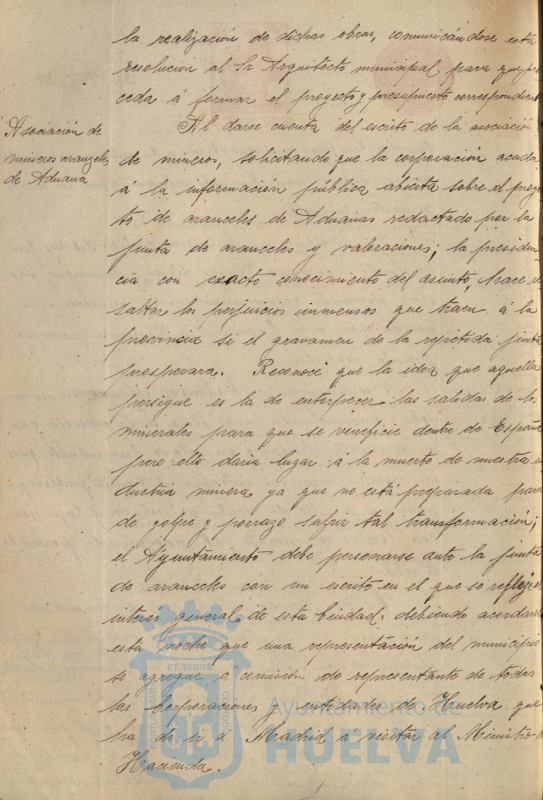 la realización de dichas obras, comunicándose esta
resolución al Sr Arquitecto municipal para que pro
ceda á formar el proyecto y presupuesto correspondiente
Asociación de
mineros aranceles
de Aduana
Al darse cuenta del escrito de la asociación
de mineros, solicitando que la corporación acuda
á la información pública abierta sobre el proyec
to de aranceles de Aduanas redactado por la
junta de aranceles y valoraciones; la presiden
cia con exacto conocimiento del asunto, hace re
saltar los perjuicios inmensos que traen á la
provincia si el gravamen de la repetida junta
prosperara. Reconoce que la idea que aquella
persigue es la de enterpecer las salidas de los
minerales para que se veneficie dentro de España
pero ello daria lugar á la muerte de nuestra in
dustria minera ya que no está preparada para
de golpe y porrazo sufrir tal transformación;
el Ayuntamiento debe personarse ante la junta
de aranceles con un escrito en el que se refleje el
interes general de esta Ciudad, debiendo acordarse
esta noche que una representación del municipio
se agregue á comisión de representante de todas
las Corporaciones y entidades de Huelva que
ha de ir á Madrid a visitar al Ministro de
Hacienda.
ET TERRA
Ayuntamiento de
HUELVA